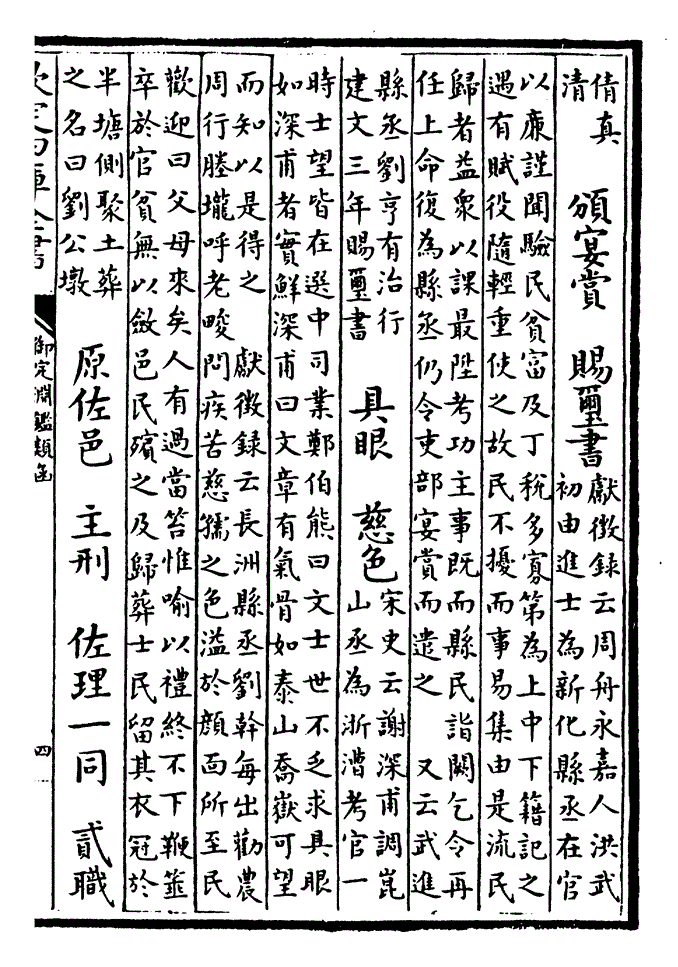 倩真
清
頒宴賞　賜璽書
獻徵錄云周舟永嘉人洪武
初由進士為新化縣丞在官
以廉謹聞驗民貧富及丁稅多寡第為上中下籍記之
遇有賦役隨輕重使之故民不擾而事易集由是流民
歸者益衆以課最陞考功主事既而縣民詣闕乞令再
任上命復為縣丞仍令吏部宴賞而遣之　又云武進
縣丞劉亨有治行
建文三年賜璽書
具眼　慈色
宋史云謝深甫調崑
山丞為浙漕考官一
時士望皆在選中司業鄭伯熊曰文士世不乏求具眼
如深甫者實鮮深甫曰文章有氣骨如泰山喬嶽可望
而知以是得之　獻徵録云長洲縣丞劉幹每出勸農
周行塍壠呼老畯問疾苦慈孺之色溢於顔面所至民
歡迎曰父母來矣人有過當笞惟喻以禮終不下鞭箠
卒於官貧無以斂邑民殯之及歸葬士民留其衣冠於
半塘側聚土葬
之名曰劉公墩
原佐邑　主刑　佐理一同　貳職
欽定四庫全書
御定淵鑑類函
四